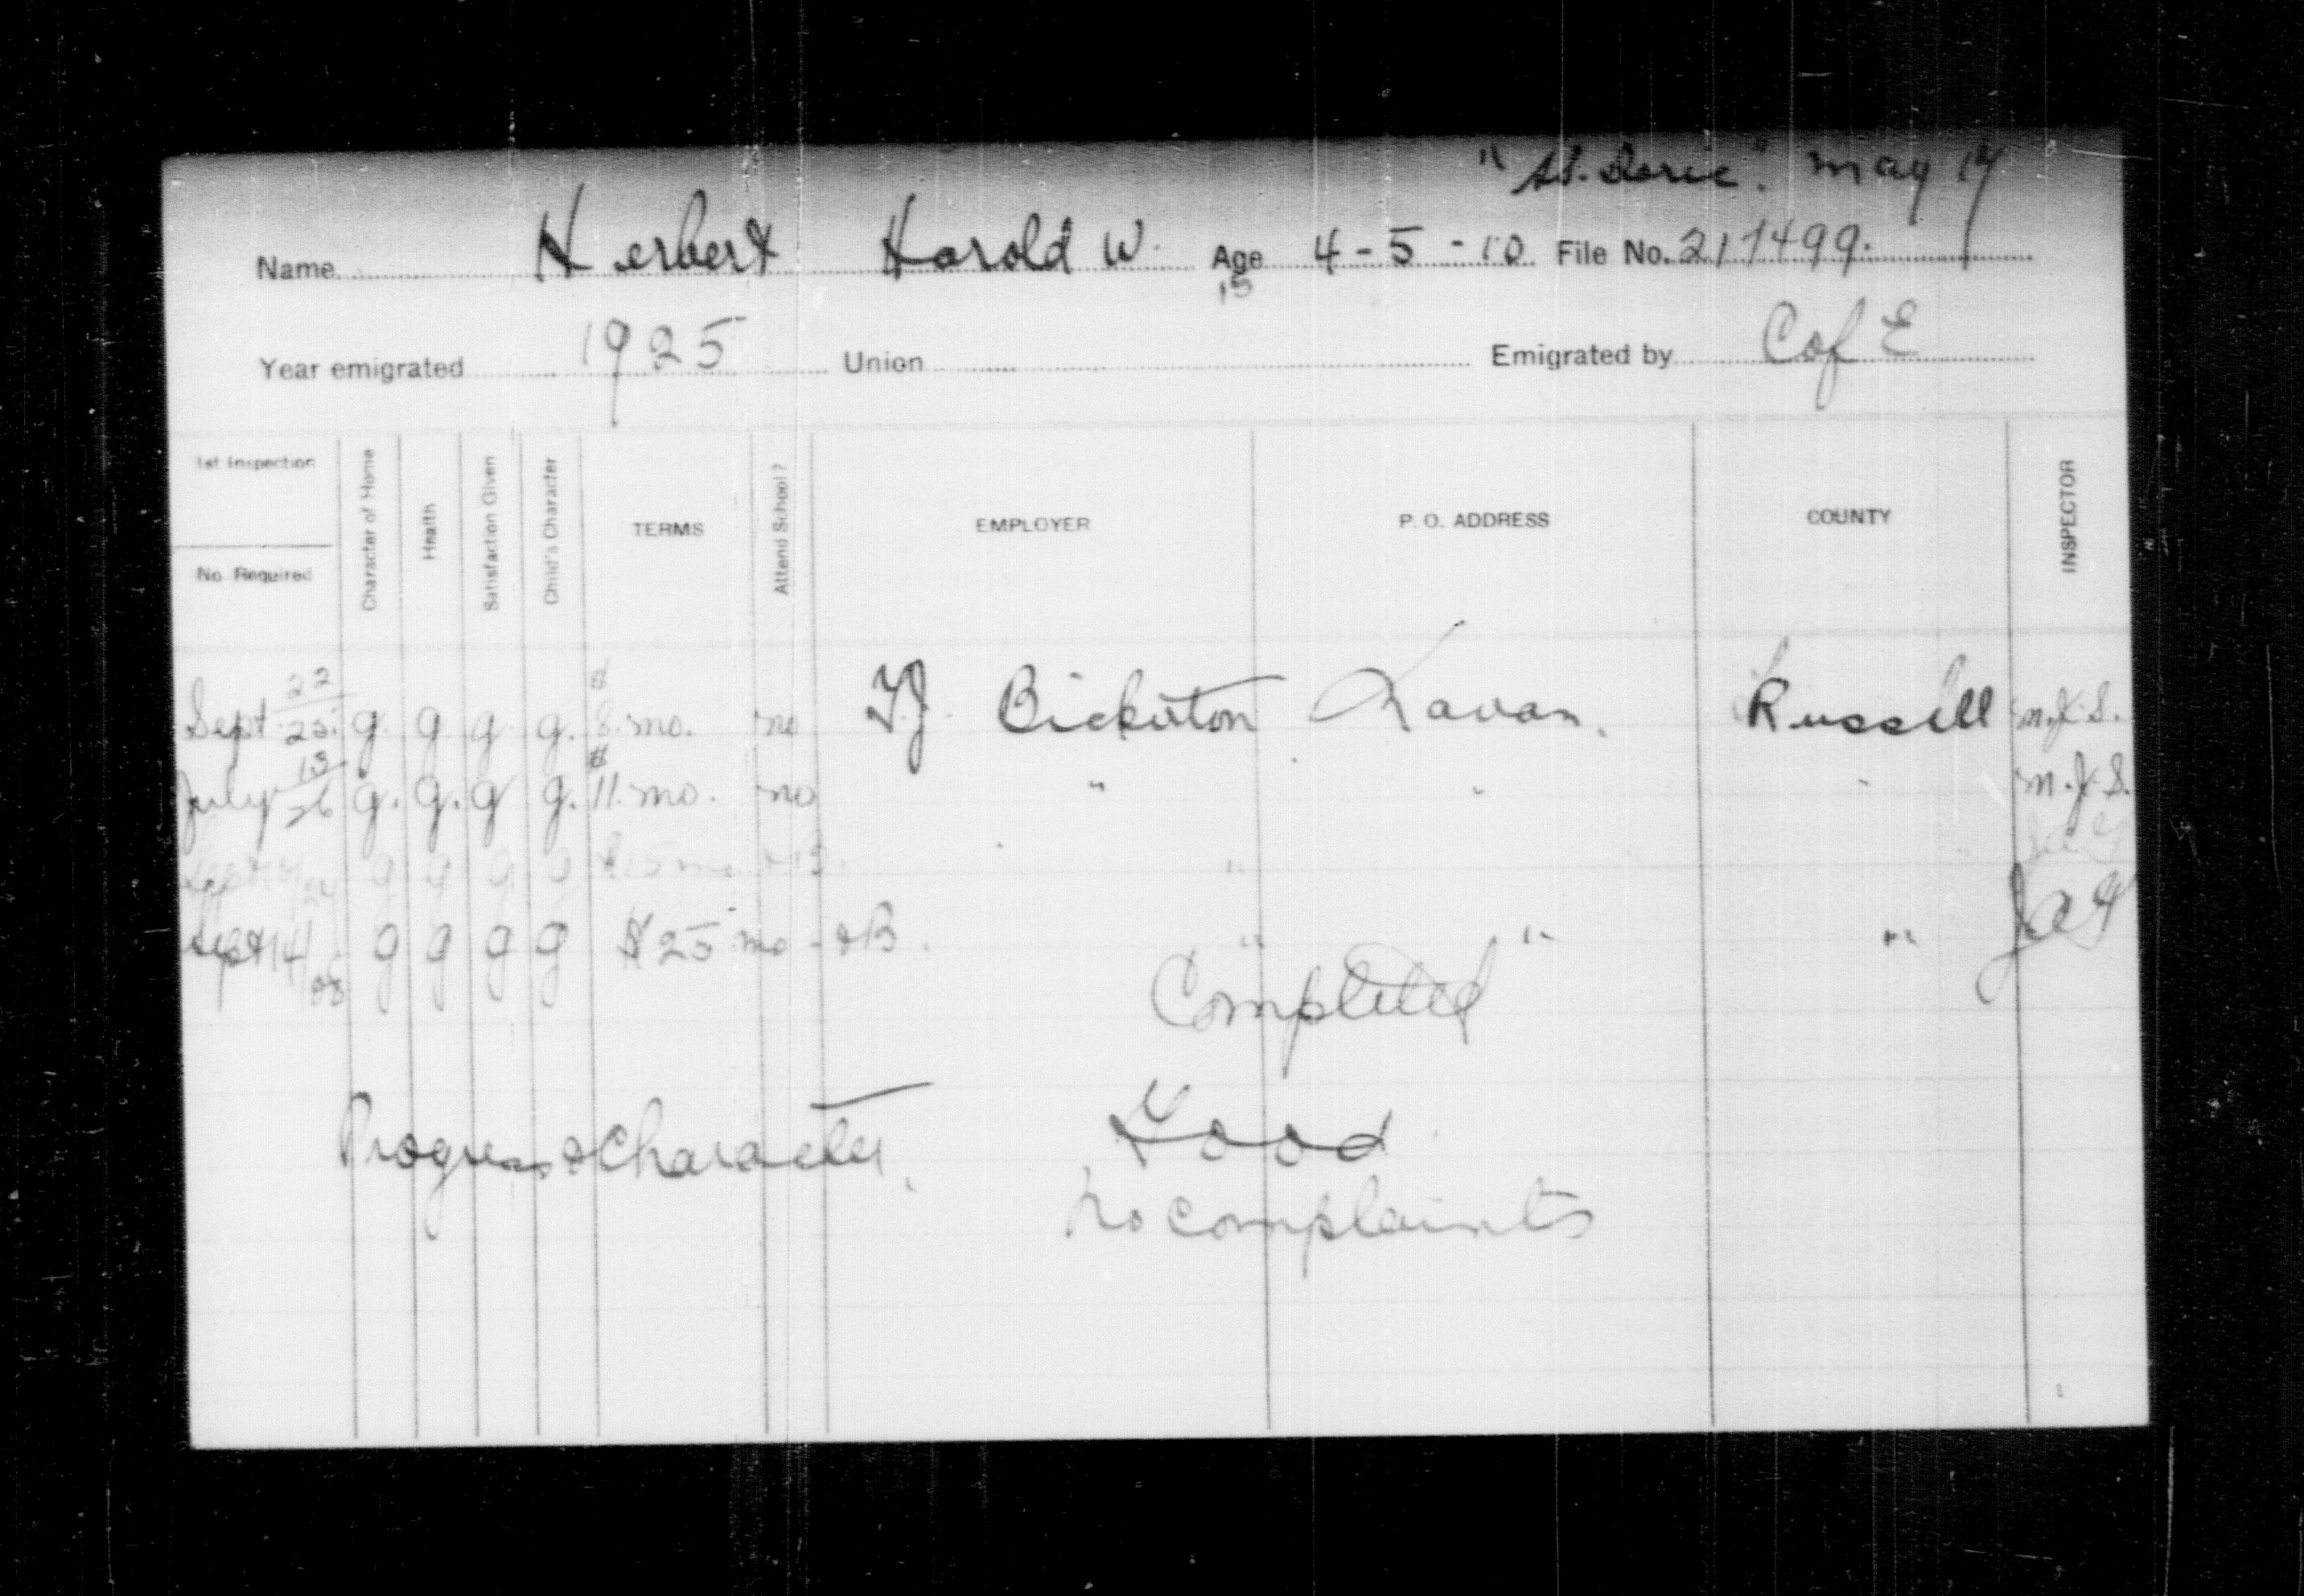 May 14
Name Herbert Harold W. Age 4-5-10 File No. 217499.
15
Year emigrated 1925 Union Emigrated by C of E
1st Inspection
No. Required
Character of Home
Health
Satisfaction Given
Child's Character
TERMS
Attend School?
EMPLOYER
P. O. ADDRESS
COUNTY
INSPECTOR
Sept 22/25. g. g g g. $8. mo. no Bickerton Russell
July 13/26 g. g. g g. $11. mo. no " " "
g g g g "
Sept 14/28 g g g g $25 mo - & B. " " "
Completed
Progress & Character. Good
No complaints